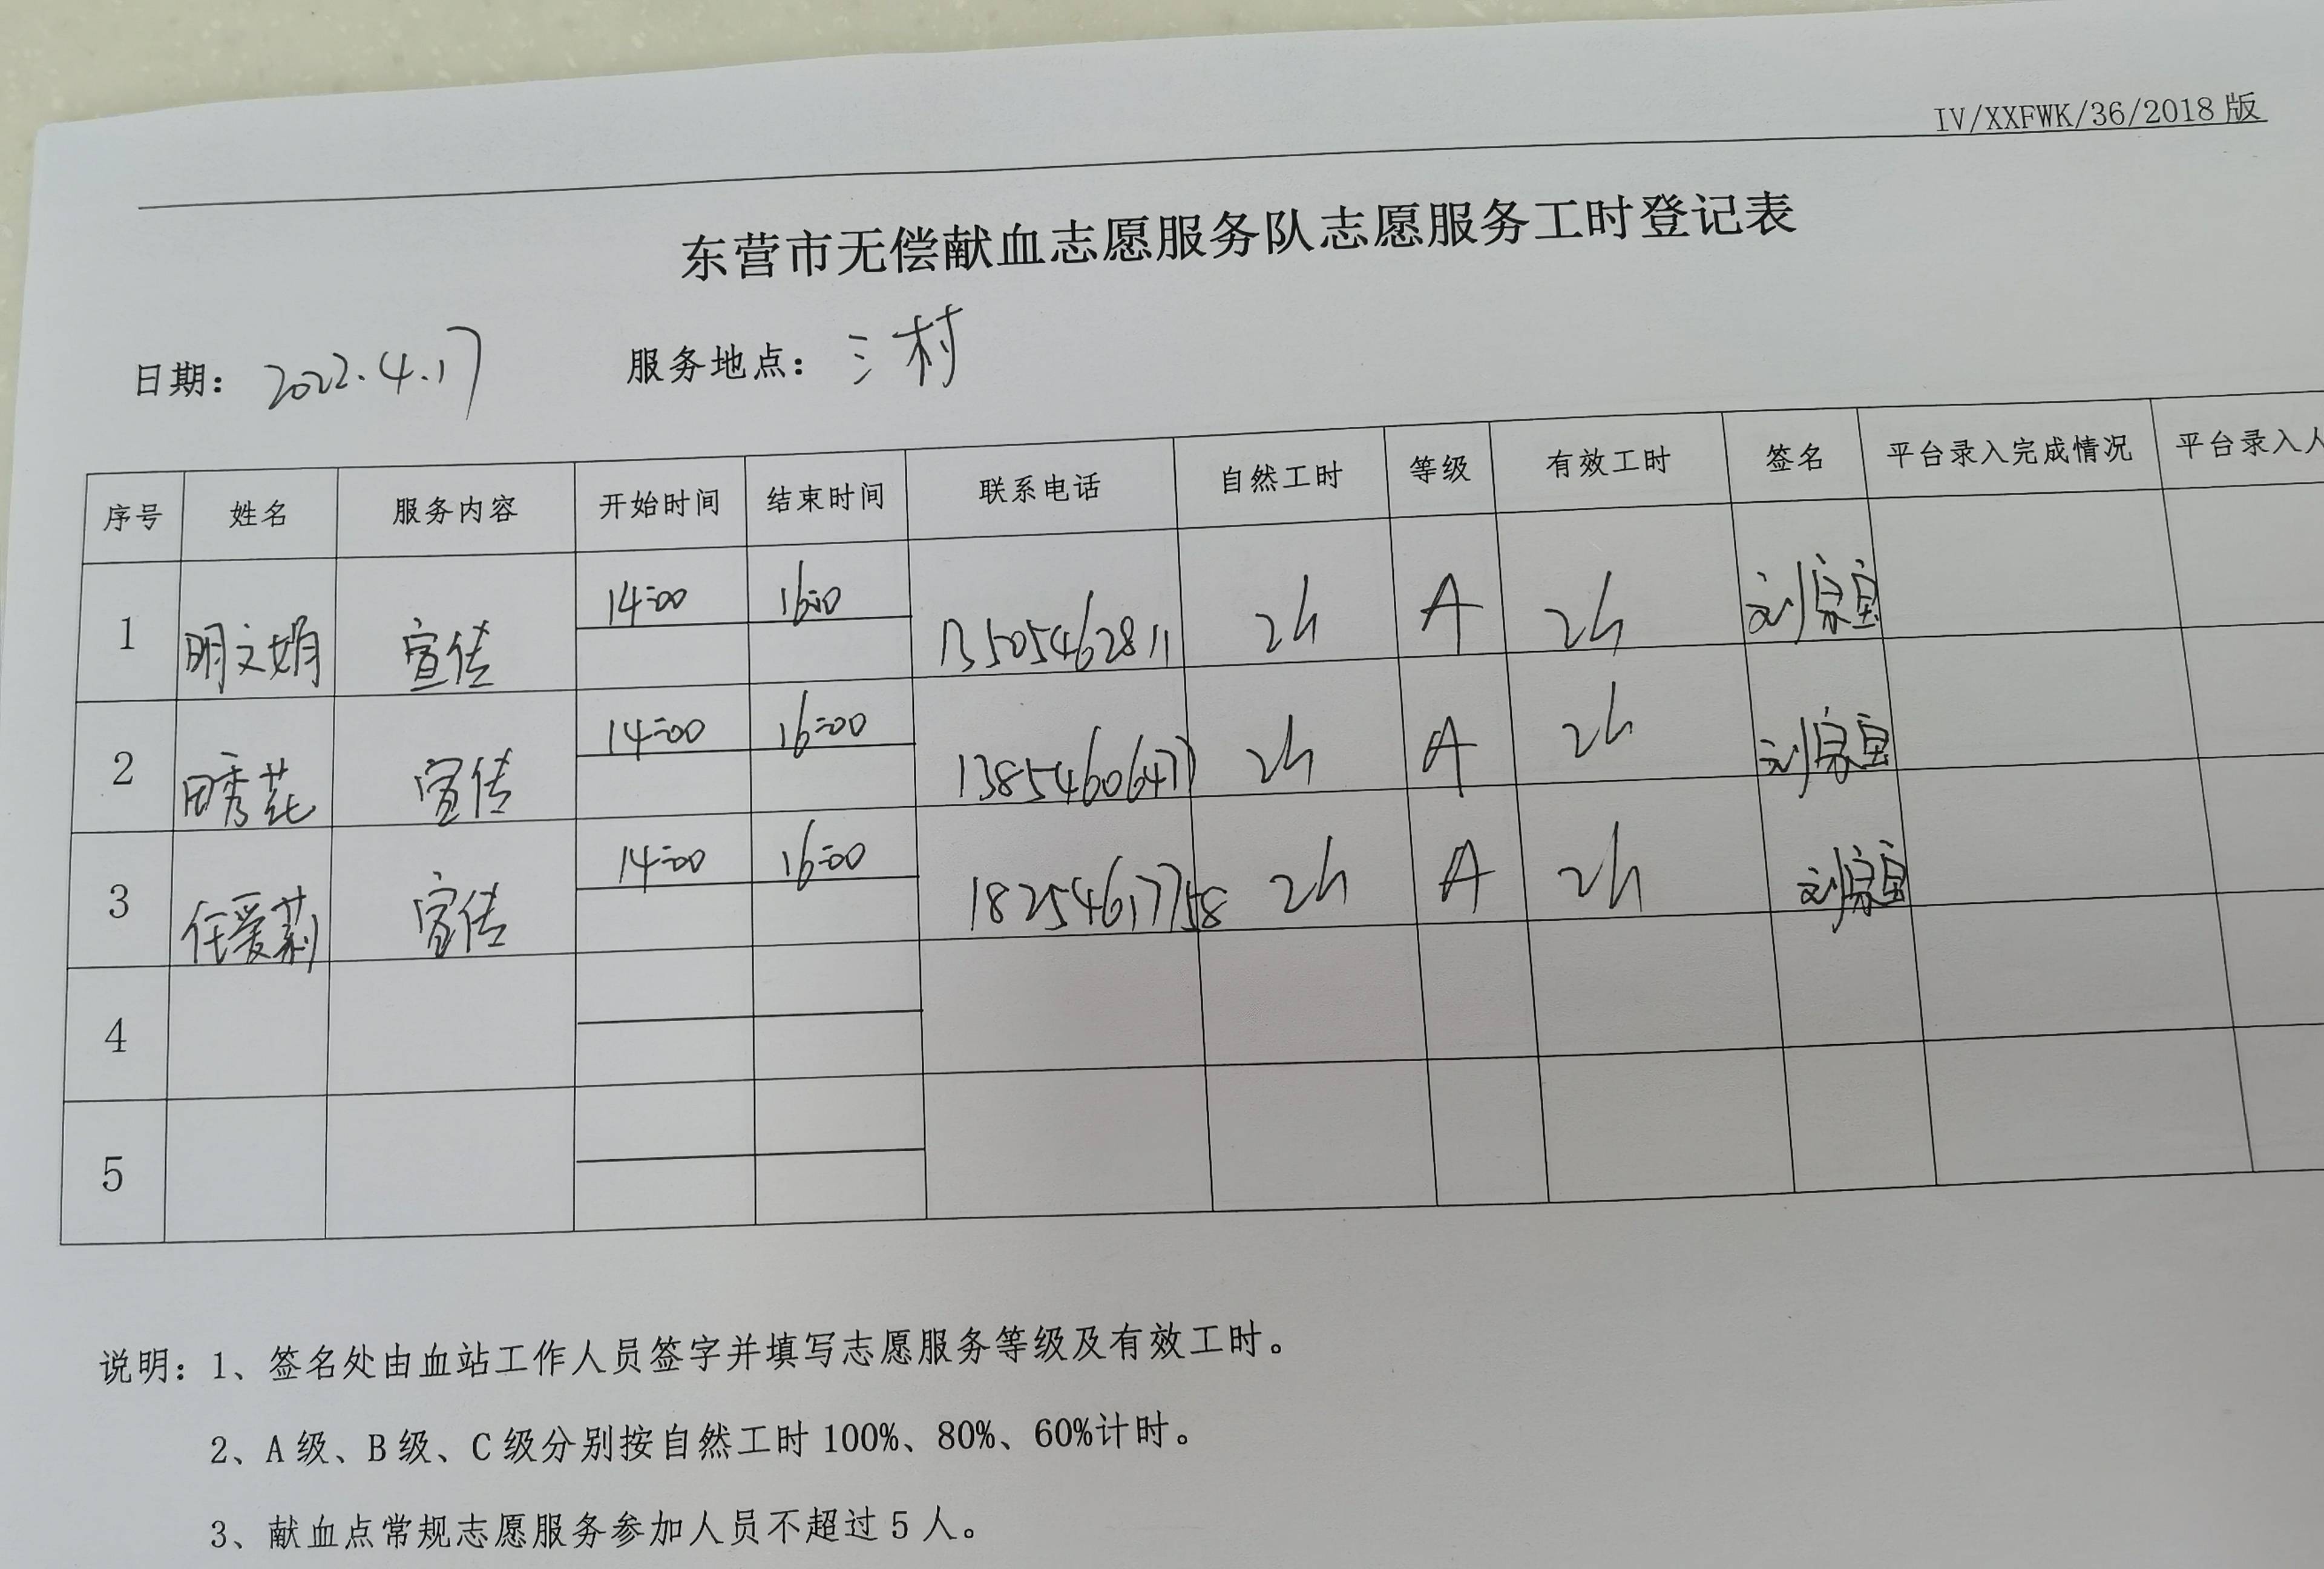 IV/XXFWK/36/2018版
东营市无偿献血志愿服务队志愿服务工时登记表
日期：2022.4.17 服务地点：三村
序号 姓名 服务内容 开始时间 结束时间 联系电话 自然工时 等级 有效工时 签名 平台录入完成情况 平台录入人
1 明文娟 宣传 14:00 16:00 13505462811 2h A 2h 刘家宝
2 田秀花 宣传 14:00 16:00 13854606477 2h A 2h 刘家宝
3 任爱莉 宣传 14:00 16:00 18254617758 2h A 2h 刘家宝
4
5
说明：1、签名处由血站工作人员签字并填写志愿服务等级及有效工时。
2、A级、B级、C级分别按自然工时100%、80%、60%计时。
3、献血点常规志愿服务参加人员不超过5人。